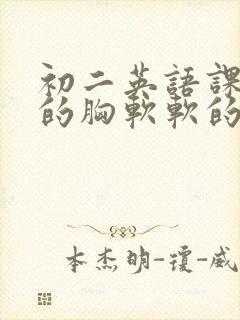 初二英語課
的胸軟軟的
本杰明-瓊-威